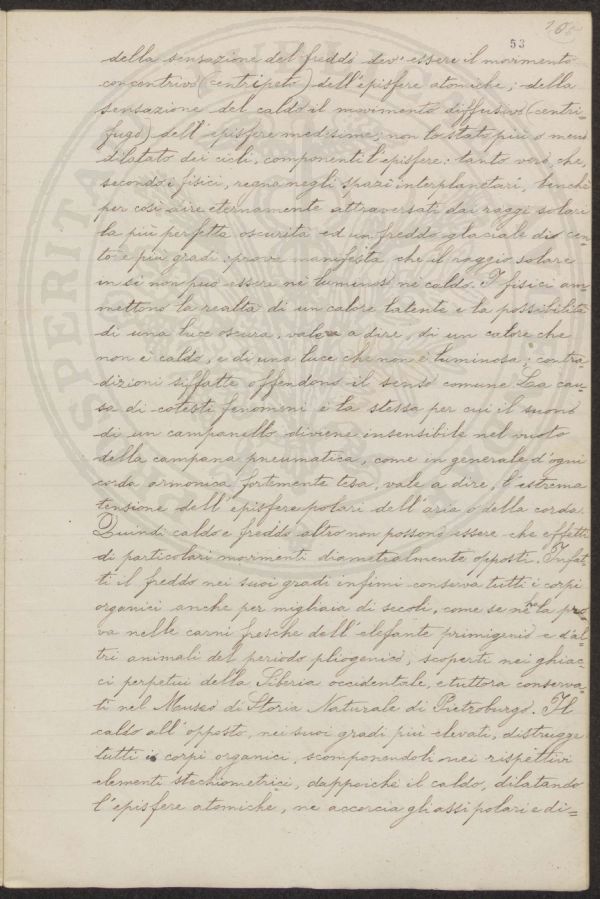 53
della sensazione del freddo dev' essere il movimento
concentrivo (centripeto) dell' episfere atomiche; della
sensazione del caldo il movimento diffusivo (centri-
fugo) dell' episfere medesime, non lo stato più o meno
dilatato dei cicli, componenti l'episfere: tanto vero, che,
secondo i fisici, regna negli spazi interplanetari, benchè
per così dire eternamente attraversati dai raggi solari
la più perfetta oscurità ed un freddo glaciale di cen-
to e più gradi: prova manifesta che il raggio solare
in sè non può essere nè luminoso, nè caldo. I fisici am
mettono la realtà di un calore latente e la possibilità
di una luce oscura, vale a dire, di un calore che
non è caldo, e di una luce che non è luminosa; contra-
dizioni siffatte offendono il senso comune. La cau-
sa di cotesti fenomeni è la stessa per cui il suono
di un campanello diviene insensibile nel vuoto
della campana pneumatica, come in generale d'ogni
corda armonica fortemente tesa, vale a dire, l'estrema
tensione dell' episfere polari dell' aria o della corda.
Quindi caldo e freddo altro non possono essere che effetti
di particolari movimenti diametralmente opposti. Infat-
ti il freddo nei suoi gradi infimi conserva tutti i corpi
organici anche per migliaia di secoli, come se ne ha la pro-
va nelle carni fresche dell' elefante primigenio e d'al-
tri animali del periodo pliogenico, scoperti nei ghiac-
ci perpetui della Siberia occidentale, e tuttora conserva-
ti nel Museo di Storia Naturale di Pietroburgo. Il
caldo all' opposto, nei suoi gradi più elevati, distrugge
tutti i corpi organici, scomponendoli nei rispettivi
elementi stechiometrici, dappoichè il caldo, dilatando
l' episfere atomiche, ne accorcia gli assi polari e di=